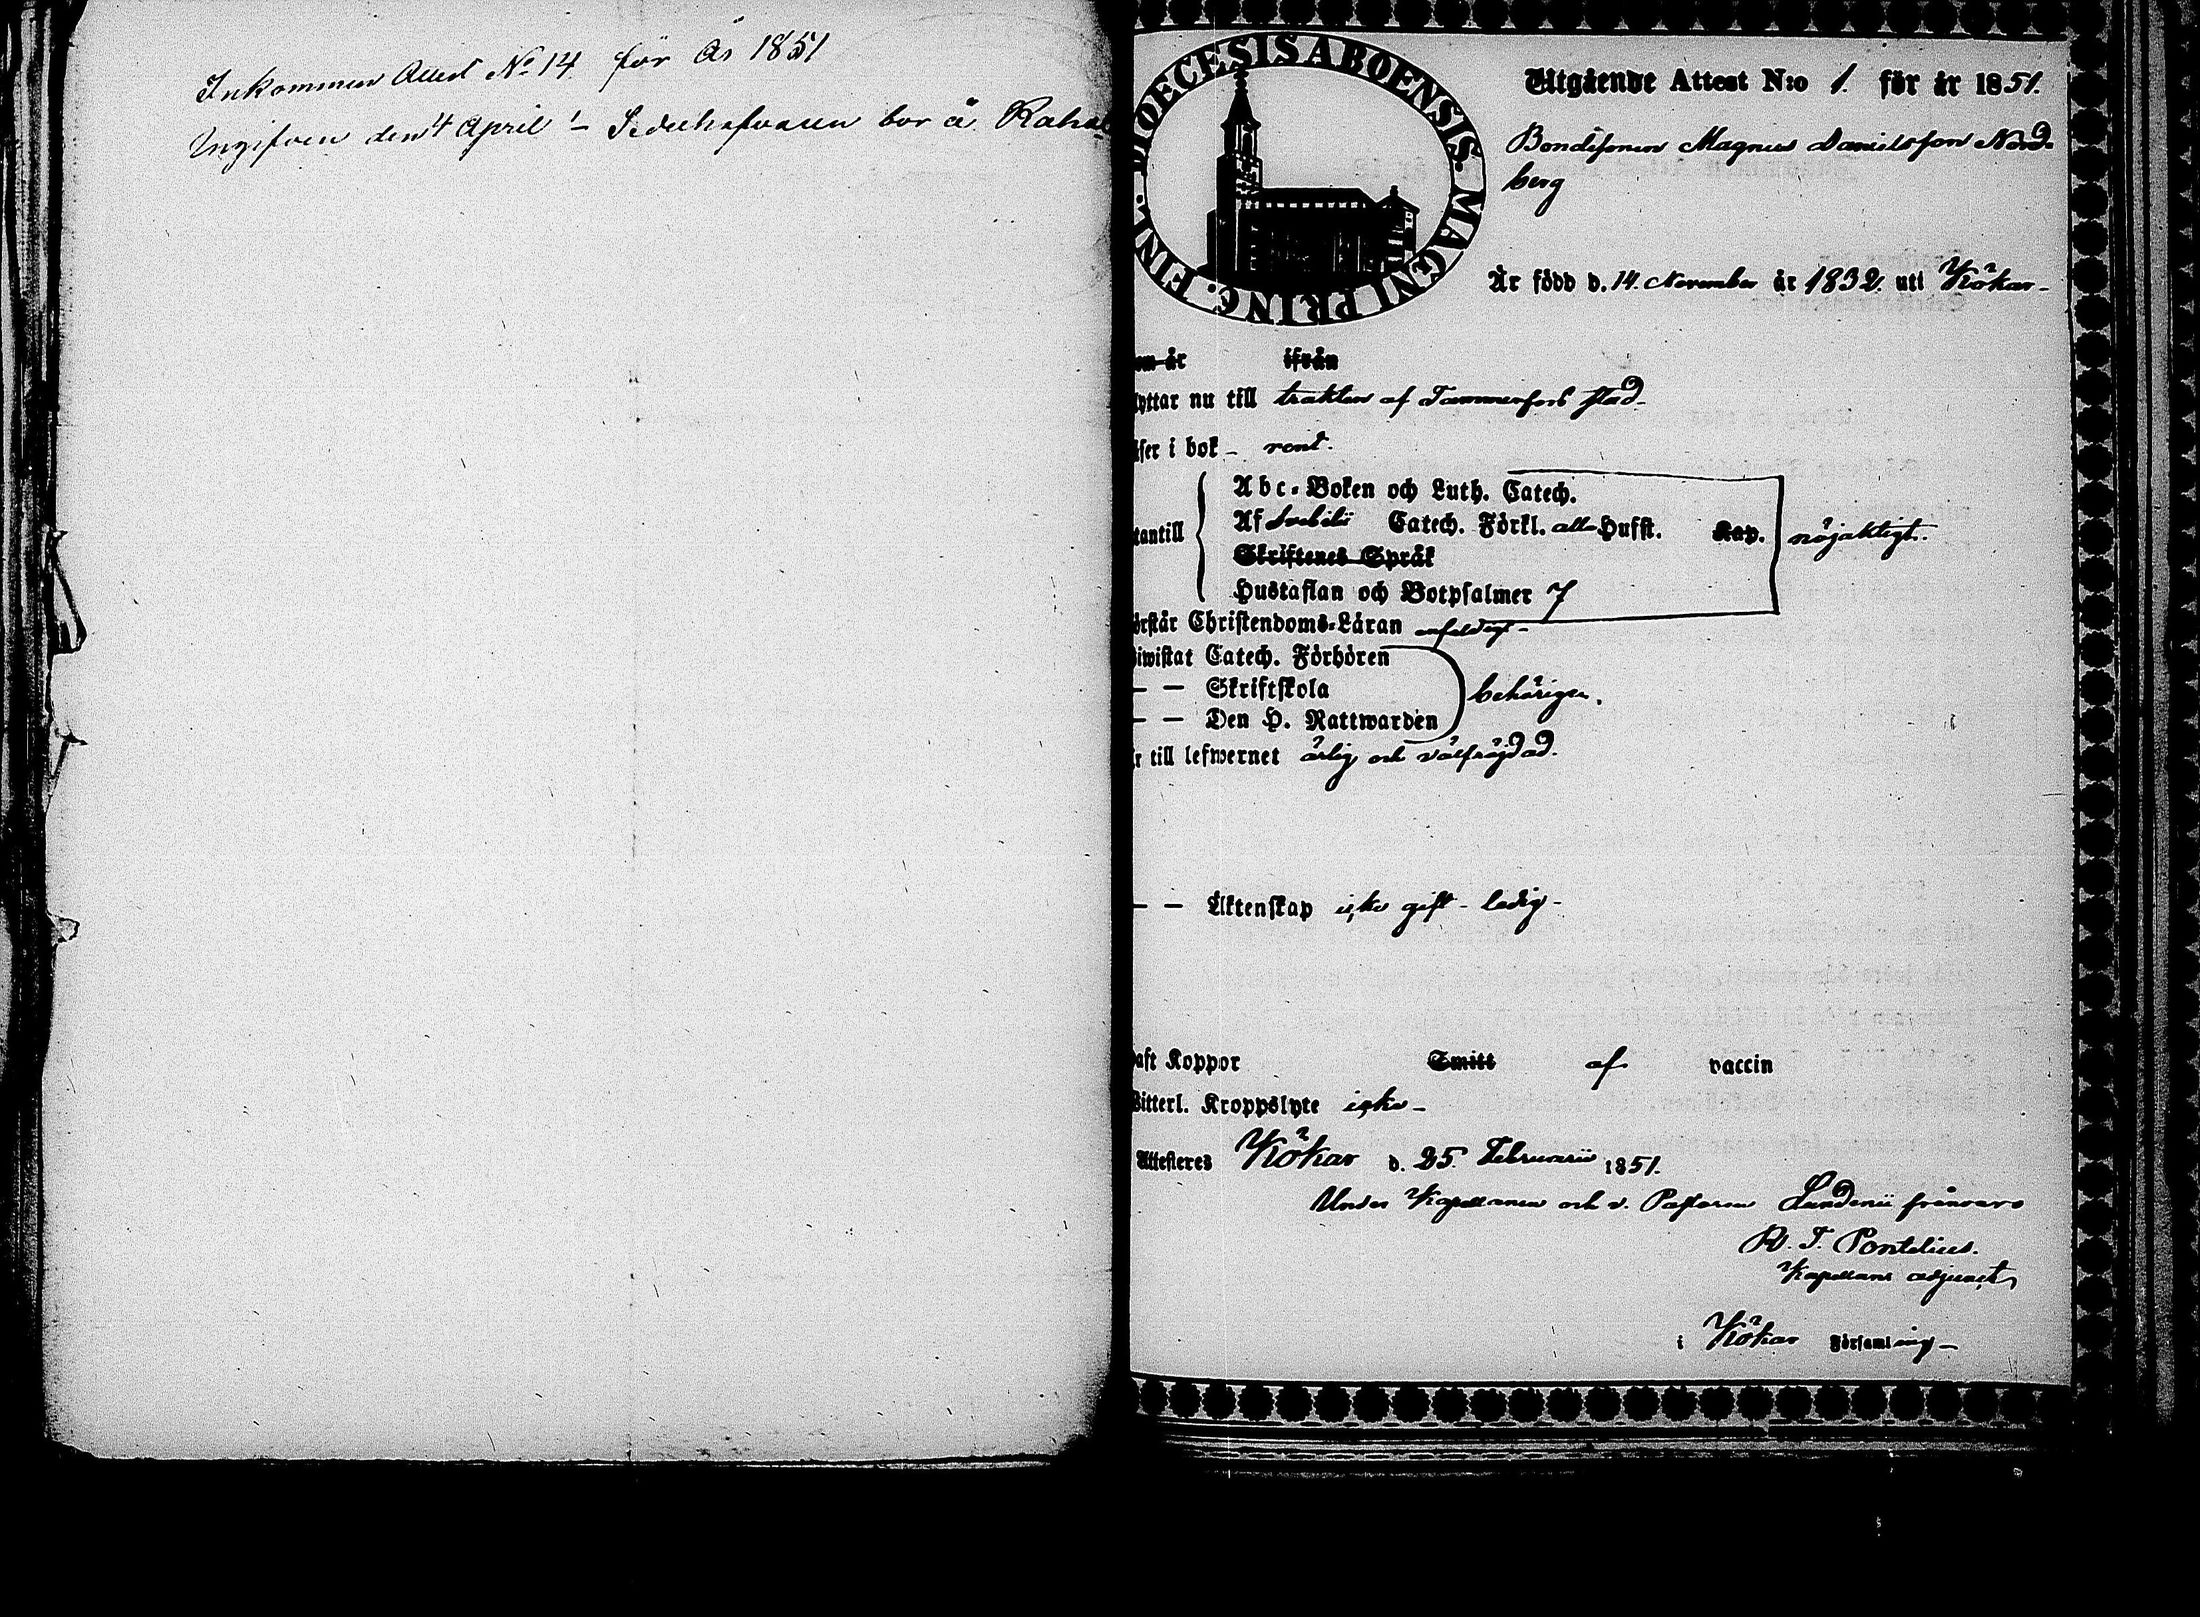 Inkommen Attest No 14 för År 1851
Ingifven den 4 April – bor å
DIOECESIS ABOENSIS. MAGNI PRINC. FINL.
Utgående Attest N:o 1. för år 1851.
Bondesonen Magnus Danielsson Nord-
berg
Är född d. 14. November år 1832. uti Kökar –
om år ifrån
yttar nu till trakten af Tammerfors stad –
äser i bok – rent.
Abc-Boken och Luth. Catech.
tantill Af Svebilii Catech. Förkl. alla Hufst. Kap. nöjaktigt.
Skriftenes Språk
Hustaflan och Botpsalmer 7
örstår Christendoms-Läran enfaldigt –
iwistat Catech. Förhören
– – Skriftskola behörigen.
– – Den H. Nattwarden
r till lefwernet ärlig och välfrägdad.
– – Äktenskap icke gift – ledig –
aft Koppor Smitt af vaccin
Witterl. Kroppslyte icke –
Attesteres Kökar d. 25. Februarii 1851.
Under Kapellanen och v. Pastoren Lundenii frånvaro
R. T. Pontelius.
Kapellans adjunct,
i Kökar Församling –